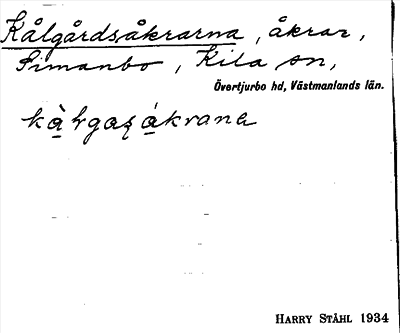 Kålgårdsåkrarna, åkrar,
Simanbo, Kila sn,
Övertjurbo hd, Västmanlands län.
HARRY STÅHL 1934